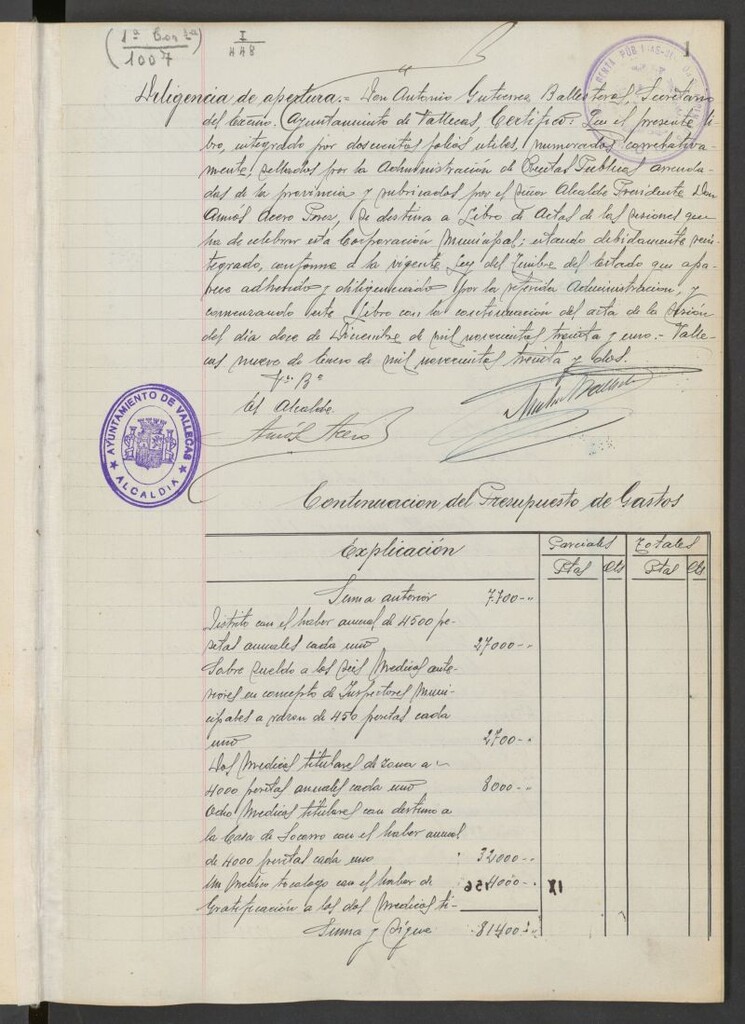 (1ª Cor
1007)
I
448
1
Diligencia de apertura.= Don Antonio Gutierrez Ballesteros, Secretario
del Excmo. Ayuntamiento de Vallecas, Certifico: Que el presente li-
bro, integrado por doscientos folios utiles, numerados correlativa-
mente, sellados por la Administración de Rentas Publicas arrenda-
das de la provincia y rubricados por el señor Alcalde Presidente Don
Amós Acero Perez, se destina a Libro de Actas de las sesiones que
ha de celebrar esta Corporación Municipal; estando debidamente rein-
tegrado, conforme a la vigente Ley del Timbre del Estado que apa-
rece adherido y diligenciado por la referida Administración, y
comenzando este Libro con la continuación del acta de la sesión
del día doce de Diciembre de mil novecientos treinta y uno.- Valle-
cas nueve de Enero de mil novecientos treinta y dos.
Vº Bº
El Alcalde.
Amós Acero
AYUNTAMIENTO DE VALLECAS
ALCALDIA
Continuacion del Presupuesto de Gastos
Explicación Parciales Totales
Ptas Cts Ptas Cts
Suma anterior 7700-"
Distrito con el haber anual de 4500 pe-
setas anuales cada uno 27000-"
Sobre sueldo a los seis Medicos ante-
riores en concepto de Inspectores Muni-
cipales a razon de 450 pesetas cada
uno 2700-"
Dos Medicos titulares de zona a
4000 pesetas anuales cada uno 8000-"
Ocho Medicos titulares con destino a
la Casa de Socorro con el haber anual
de 4000 pesetas cada uno 32000-"
Un Medico tocologo con el haber de 4000-"
Gratificación a los dos Medicos ti-
Suma y Sigue 81400-"